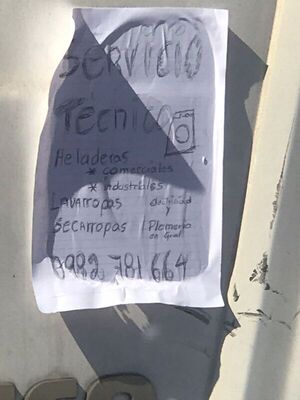 SERVICIO
TÉCNICO
HELADERAS
* comerciales
* industriales
LAVARROPAS Electricidad
y
SECARROPAS Plomeria
en Gral
0982 781 664